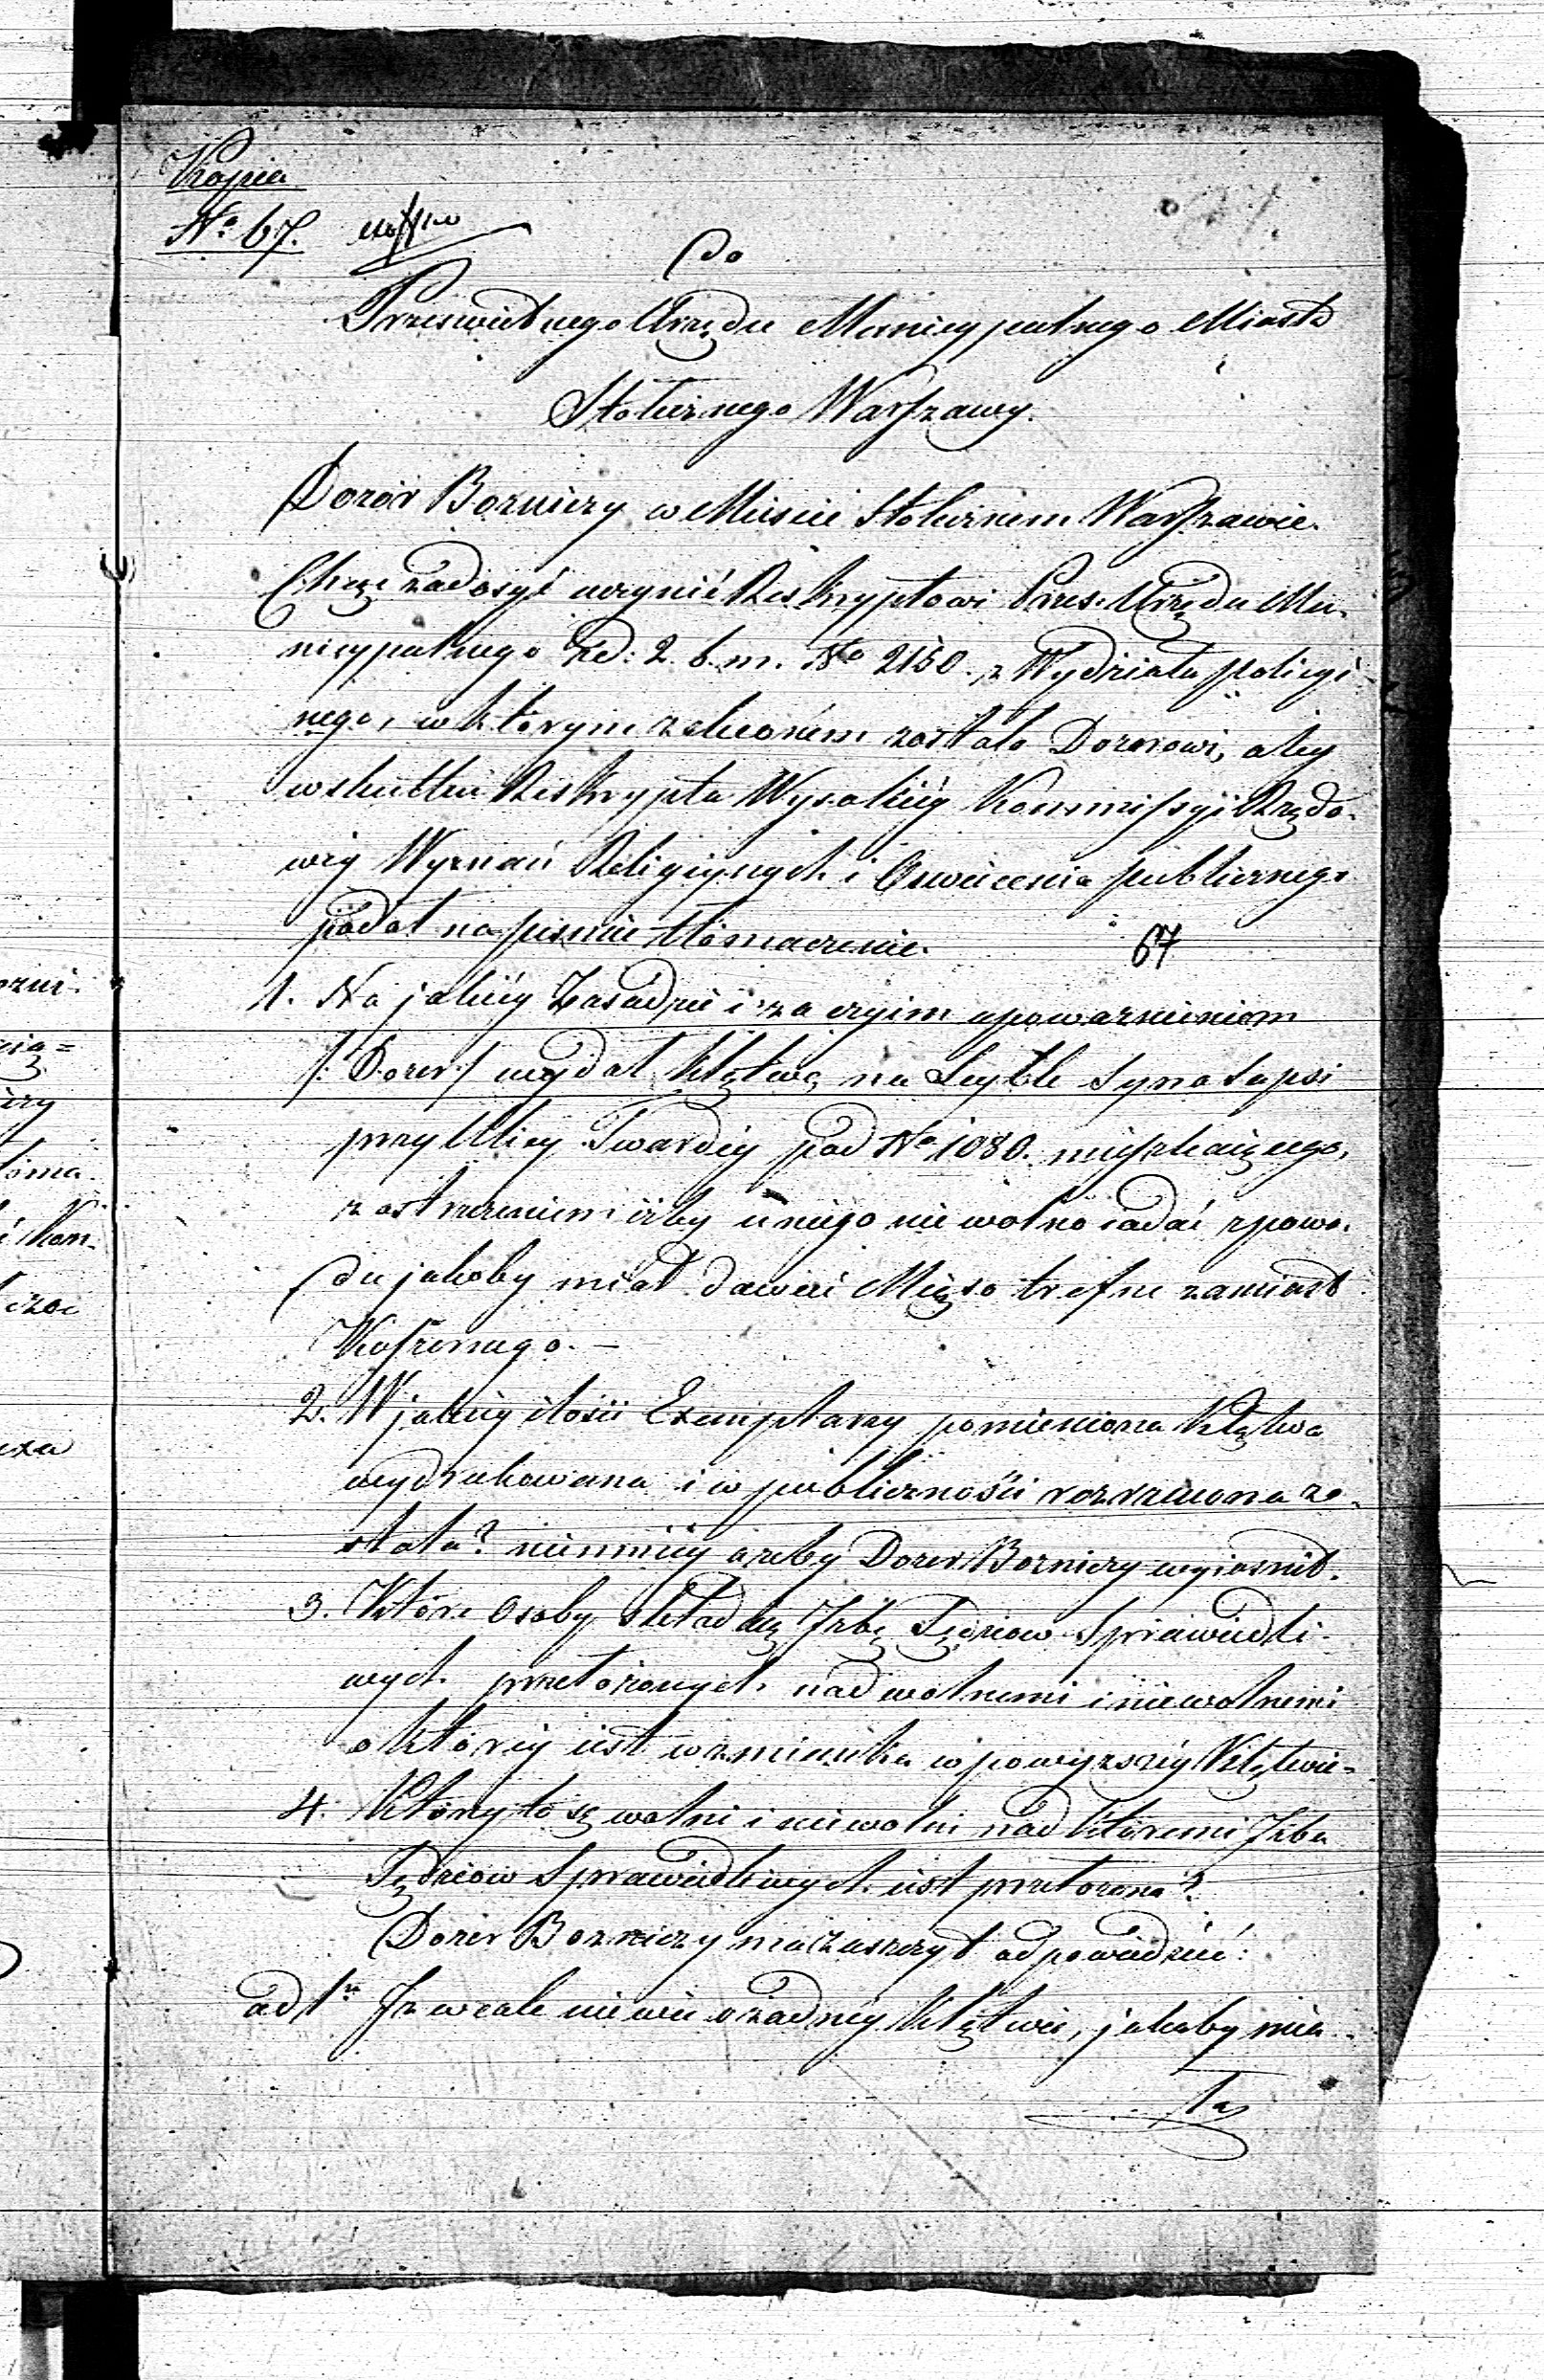 Kopia
No 67.
Do
Prześwietnego Urzędu Municypalnego Miasta
Stołecznego Warszawy.
Dozór Bożniczy w Mieście Stołecznem Warszawie.
Chcąc zadosyć uczynić Reskryptowi Prześ. Urzędu Mu-
nicypalnego zd: 2. b. m. No 2150. z Wydziału policyi-
nego, w którym zaleconém zostało Dozorowi, aby
w skutku Reskryptu Wysokiéy Kommissyi Rządo-
wéy Wyznań Religiynych i Oświecenia publicznego
podał na pismie tłómaczenie.
67
1. Na jakiéy Zasadzie i za czyim upoważnieniem
/: Dozór :/ wydał klątwę na Leybke syna
przy Ulicy Twardéy pod No 1080. mieszkaiącego,
z ostrzeżeniem iżby u niego nie wolno iadać z powo-
du jakoby miał dawać Mięso trefne zamiast
Koszernego. —
2. W jakiéy ilości Exemplarzy pomieniona Klątwa
wydrukowana i w publiczności rozrzucona zo-
stała? niemniéy ażeby Dozór Bożniczy wyiaśnił.
3. Które Osoby składaią Izbę Sędziow Sprawiedli-
wych przełożonych nad wolnemi i niewolnemi
o któréy iest wzmianka w powyższéy Klątwie-
4. Którzy to są wolni i niewolni nad któremi Izba
Sędziow Sprawiedliwych iest przełożona?
Dozór Bożniczy ma zaszczyt odpowiedzieć:
ad 1m Iż wcale nie wie o żadnéy Klątwie, jakoby mia-
ła
ozni-
cią=
iery
łóma
i kon-